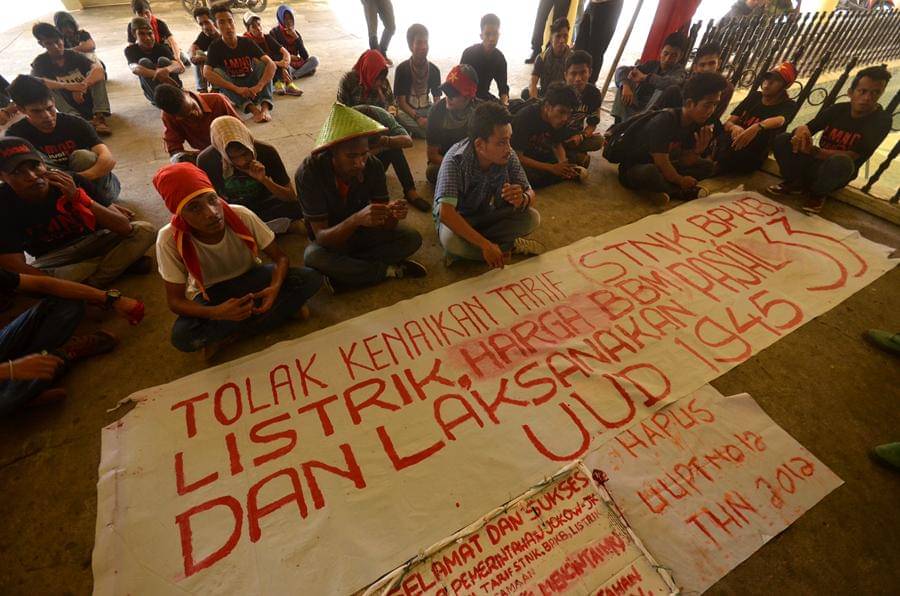 TOLAK KENAIKAN TARIF (STNK.BPKB,
LISTRIK, HARGA BBM
DAN LAKSANAKAN PASAL 33
UUD 1945
HAPUS
UUPT NO 12
THN 2012
SELAMAT DAN SUKSES
PEMERINTAHAN JOKOW-JK
TARIF STNK, BPKB, LISTRIK
LMND
LMND